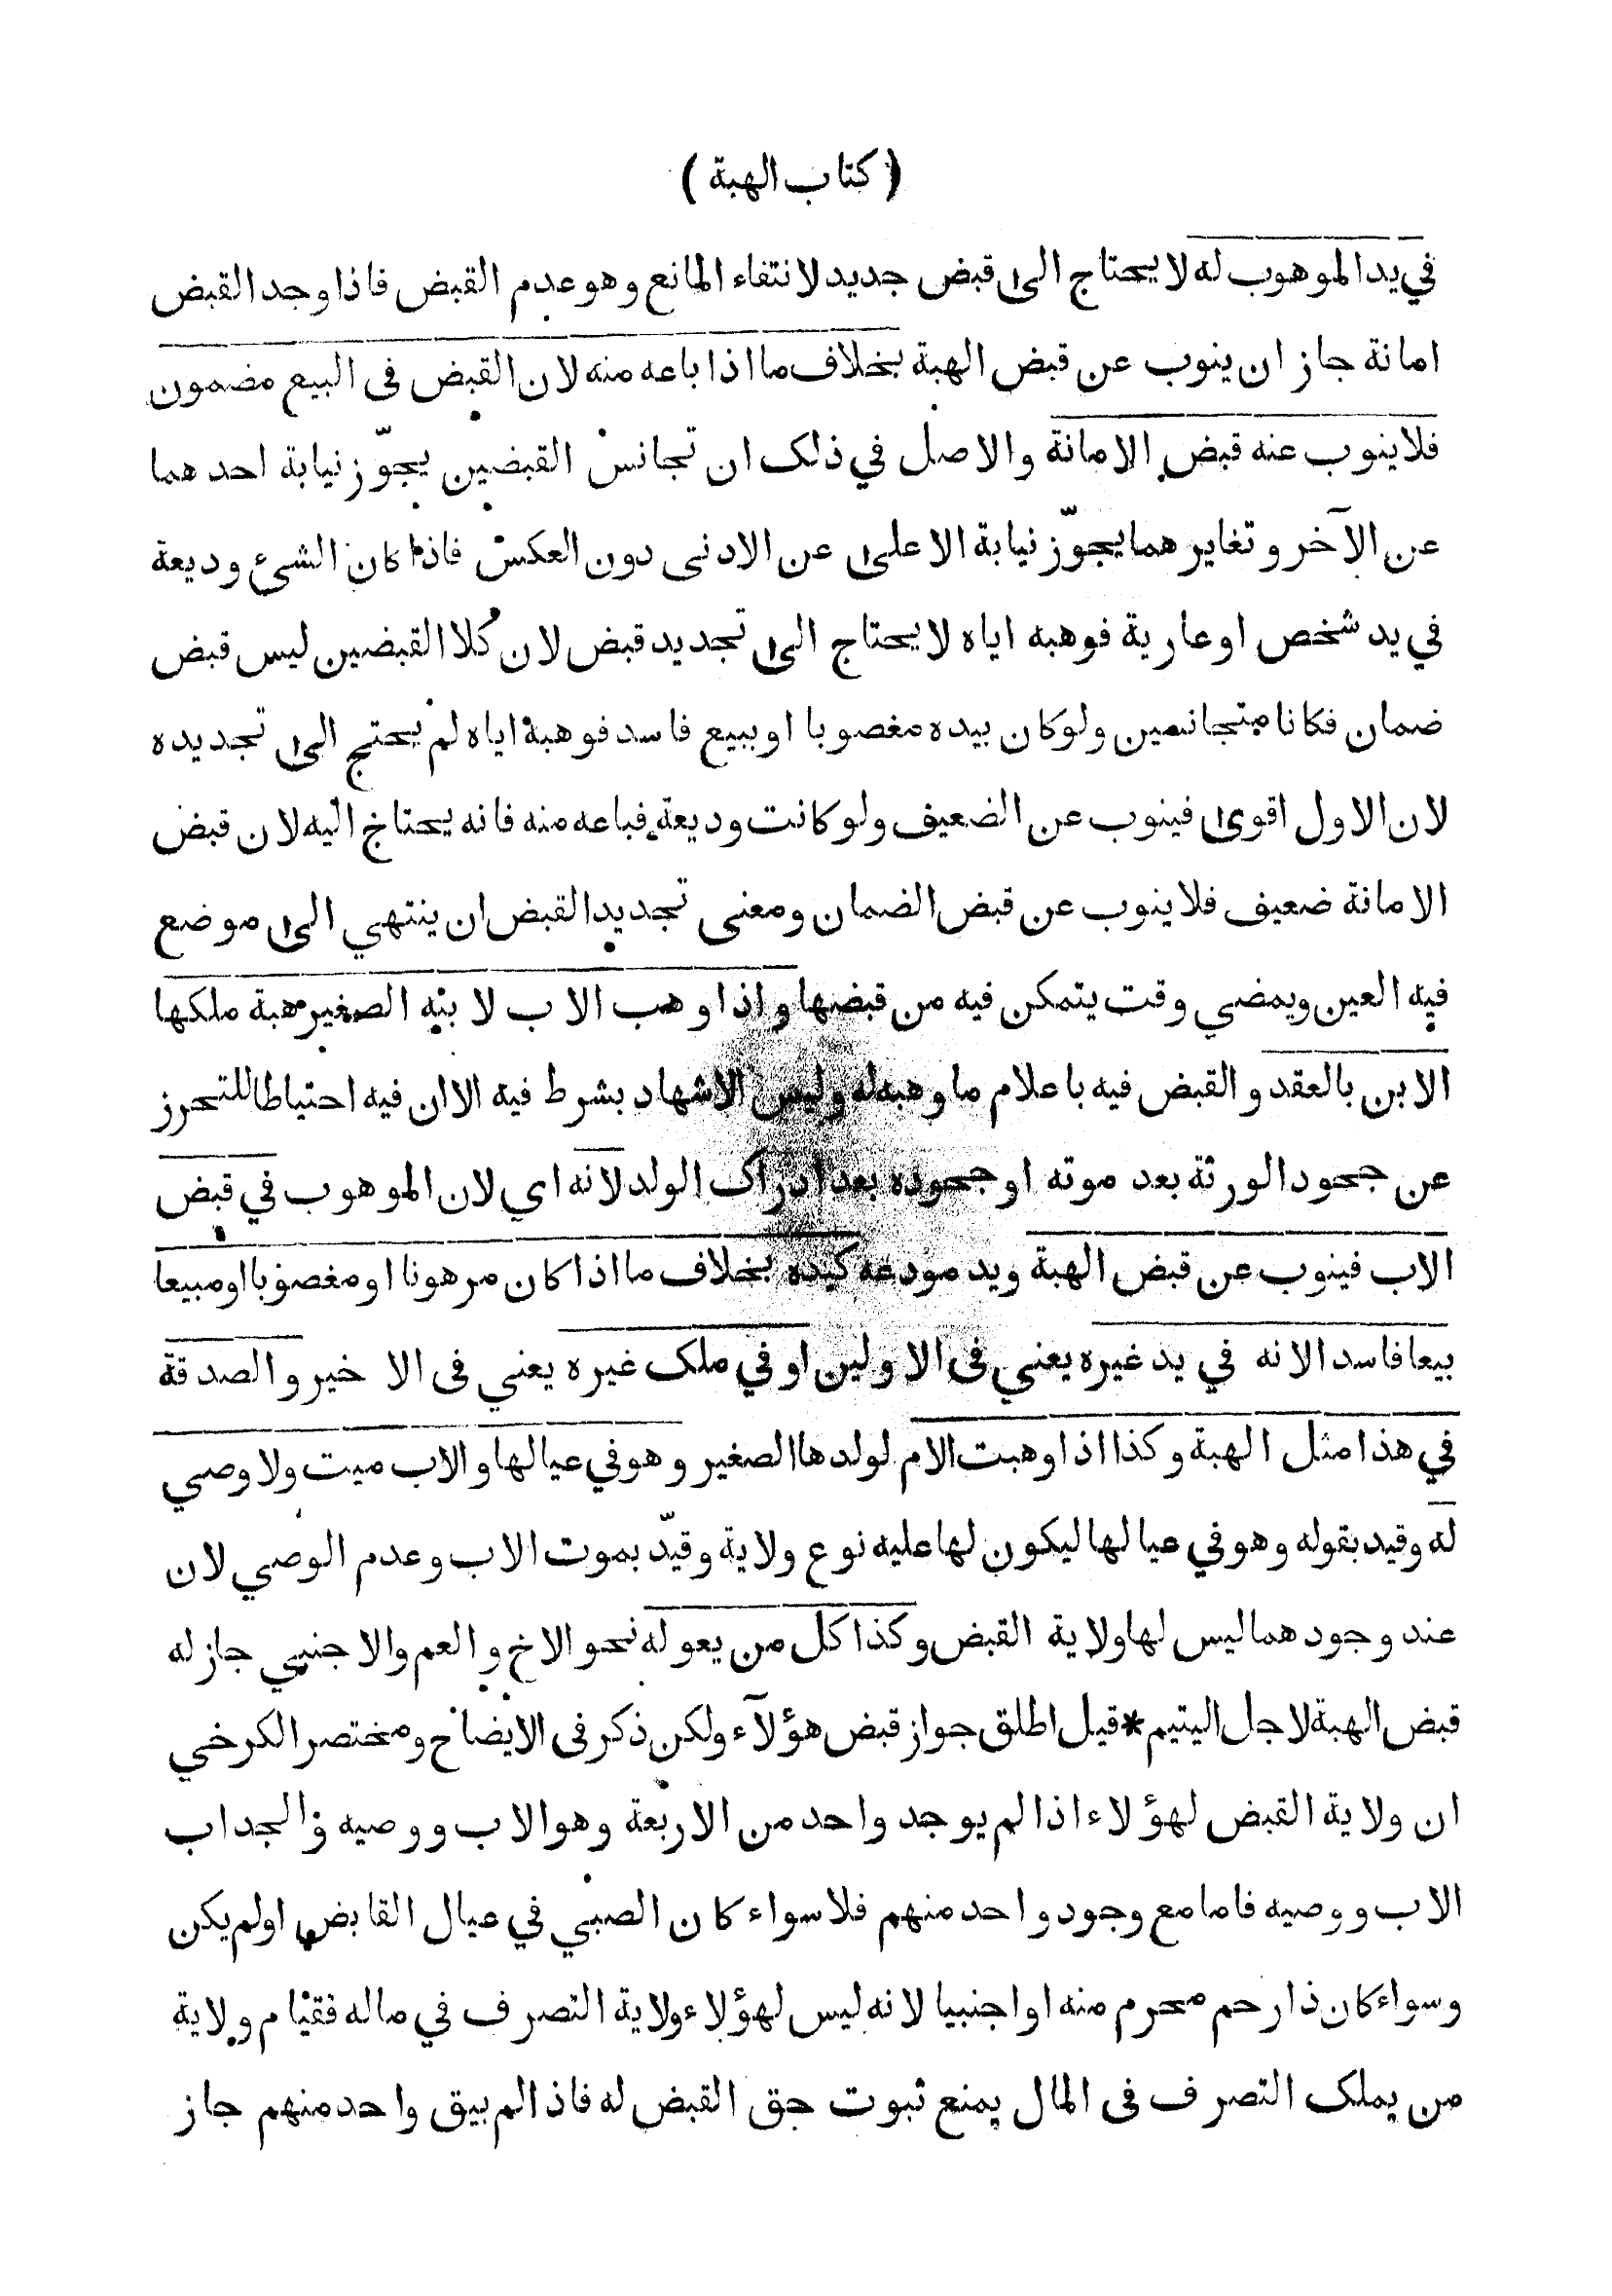 ( كتاب الهبة )
في يد الموهوب له لا يحتاج الى قبض جديد لانتفاء المانع وهو عدم القبض فاذا وجد القبض
امانة جاز ان ينوب عن قبض الهبة بخلاف ما اذا باعه منه لان القبض فى البيع مضمون
فلا ينوب عنه قبض الامانة والاصل في ذلك ان تجانس القبضين يجوّز نيابة احدهما
عن الآخر وتغايرهما يجوّز نيابة الاعلى عن الادنى دون العكس فاذا كان الشئ وديعة
في يد شخص او عارية فوهبه اياه لا يحتاج الى تجديد قبض لان كلا القبضين ليس قبض
ضمان فكانا متجانسين ولو كان بيده مغصوبا او ببيع فاسد فوهبه اياه لم يحتج الى تجديده
لان الاول اقوى فينوب عن الضعيف ولو كانت وديعة فباعه منه فانه يحتاج اليه لان قبض
الامانة ضعيف فلا ينوب عن قبض الضمان ومعنى تجديد القبض ان ينتهي الى موضع
فيه العين ويمضي وقت يتمكن فيه من قبضها واذا وهب الاب لابنه الصغير هبة ملكها
الابن بالعقد والقبض فيه باعلام ما وهبه له وليس الاشهاد بشرط فيه الا ان فيه احتياطا للتحرز
عن جحود الورثة بعد موته او جحوده بعد ادراك الولد لانه اي لان الموهوب في قبض
الاب فينوب عن قبض الهبة ويد مودعه كيده بخلاف ما اذا كان مرهونا او مغصوبا او مبيعا
بيعا فاسدا لانه في يد غيره يعني فى الاولين او في ملك غيره يعني فى الاخير والصدقة
في هذا مثل الهبة وكذا اذا وهبت الام لولدها الصغير وهو في عيالها والاب ميت ولا وصي
له وقيد بقوله وهو في عيالها ليكون لها عليه نوع ولاية وقيّد بموت الاب وعدم الوصي لان
عند وجودهما ليس لها ولاية القبض وكذا كل من يعوله نحو الاخ والعم والاجنبي جاز له
قبض الهبة لاجل اليتيم * قيل اطلق جواز قبض هؤلآء ولكن ذكر فى الايضاح ومختصر الكرخي
ان ولاية القبض لهؤلاء اذا لم يوجد واحد من الاربعة وهو الاب ووصيه والجد اب
الاب ووصيه فاما مع وجود واحد منهم فلا سواء كان الصبي في عيال القابض او لم يكن
وسواء كان ذا رحم محرم منه او اجنبيا لانه ليس لهؤلاء ولاية التصرف في ماله فقيام ولاية
من يملك التصرف فى المال يمنع ثبوت حق القبض له فاذا لم يبق واحد منهم جاز